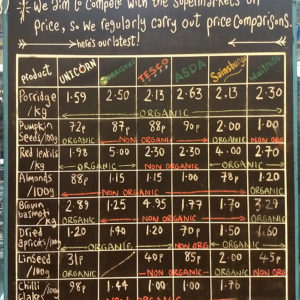 * We aim to compete with the supermarkets on
price, so we regularly carry out price comparisons.
here's our latest!
product UNICORN TESCO ASDA Sainsburys Waitrose
Porridge /kg 1.59 2.50 2.13 2.63 2.13 2.30
ORGANIC
Pumpkin Seeds/100g 72p 87p 88p 90p 2.00 1.00
ORGANIC NON ORGANIC ORGANIC NON ORG
Red lentils /kg 1.98 5.00 2.30 2.30 4.00 2.70
ORGANIC NON ORGANIC ORGANIC
Almonds /100g 88p 1.15 1.15 1.00 78p 1.20
NON ORGANIC ORGANIC
Brown basmati /kg 2.89 1.25 4.95 1.77 1.70 3.29
ORGANIC NON ORGANIC ORGANIC
Dried apricots/100g 1.20 1.40 1.20 70p 1.50 1.60
ORGANIC NON ORG ORGANIC
LinSeed /100g 31p 40p 85p 2.00 45p
ORGANIC NON ORGANIC ORGANIC NON ORG
Chilli flakes 98p 1.44 1.00 1.00 1.76
NON ORGANIC